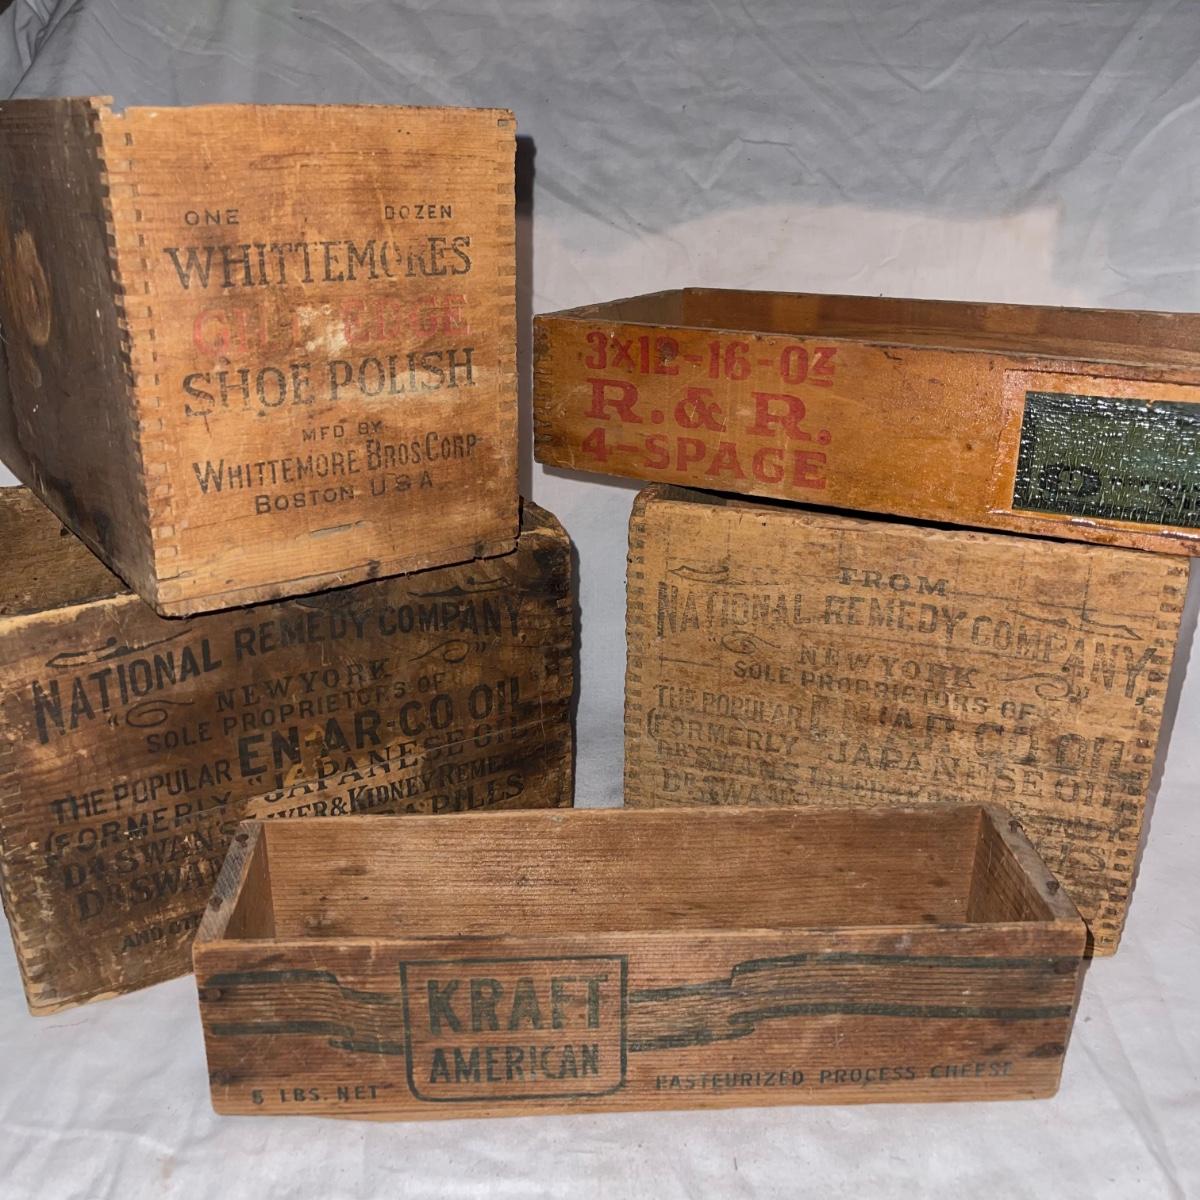 ONE DOZEN
WHITTEMORES
GILT EDGE
SHOE POLISH
MFD BY
WHITTEMORE BROS CORP
BOSTON USA
3X12-16-Oz
R. & R.
4-SPACE
NATIONAL REMEDY COMPANY
"NEW YORK"
SOLE PROPRIETORS OF
THE POPULAR EN-AR-CO OIL
(FORMERLY "JAPANESE OIL
DR. SWAN'S LIVER & KIDNEY REMEDY
DR. SWAN'S PILLS
AND
FROM
NATIONAL REMEDY COMPANY
"NEW YORK"
SOLE PROPRIETORS OF
THE POPULAR EN-AR-CO OIL
(FORMERLY JAPANESE OIL
DR. SWAN'S LIVER
DR. SWAN'S
KRAFT
AMERICAN
5 LBS. NET
PASTEURIZED PROCESS CHEESE